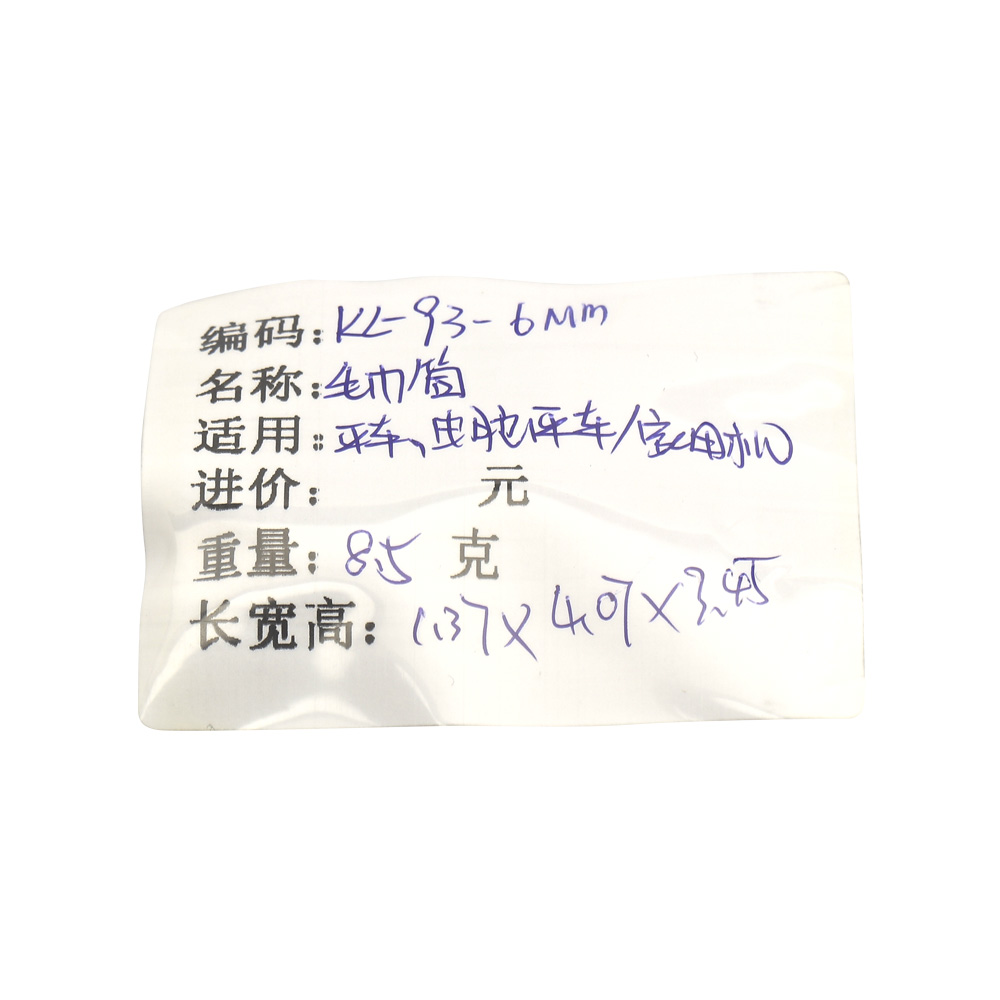 编码:KL-93-6mm
名称:毛巾筒
适用:平车、电脑平车/家用机
进价: 元
重量:8.5 克
长宽高:1.37×4.07×3.45